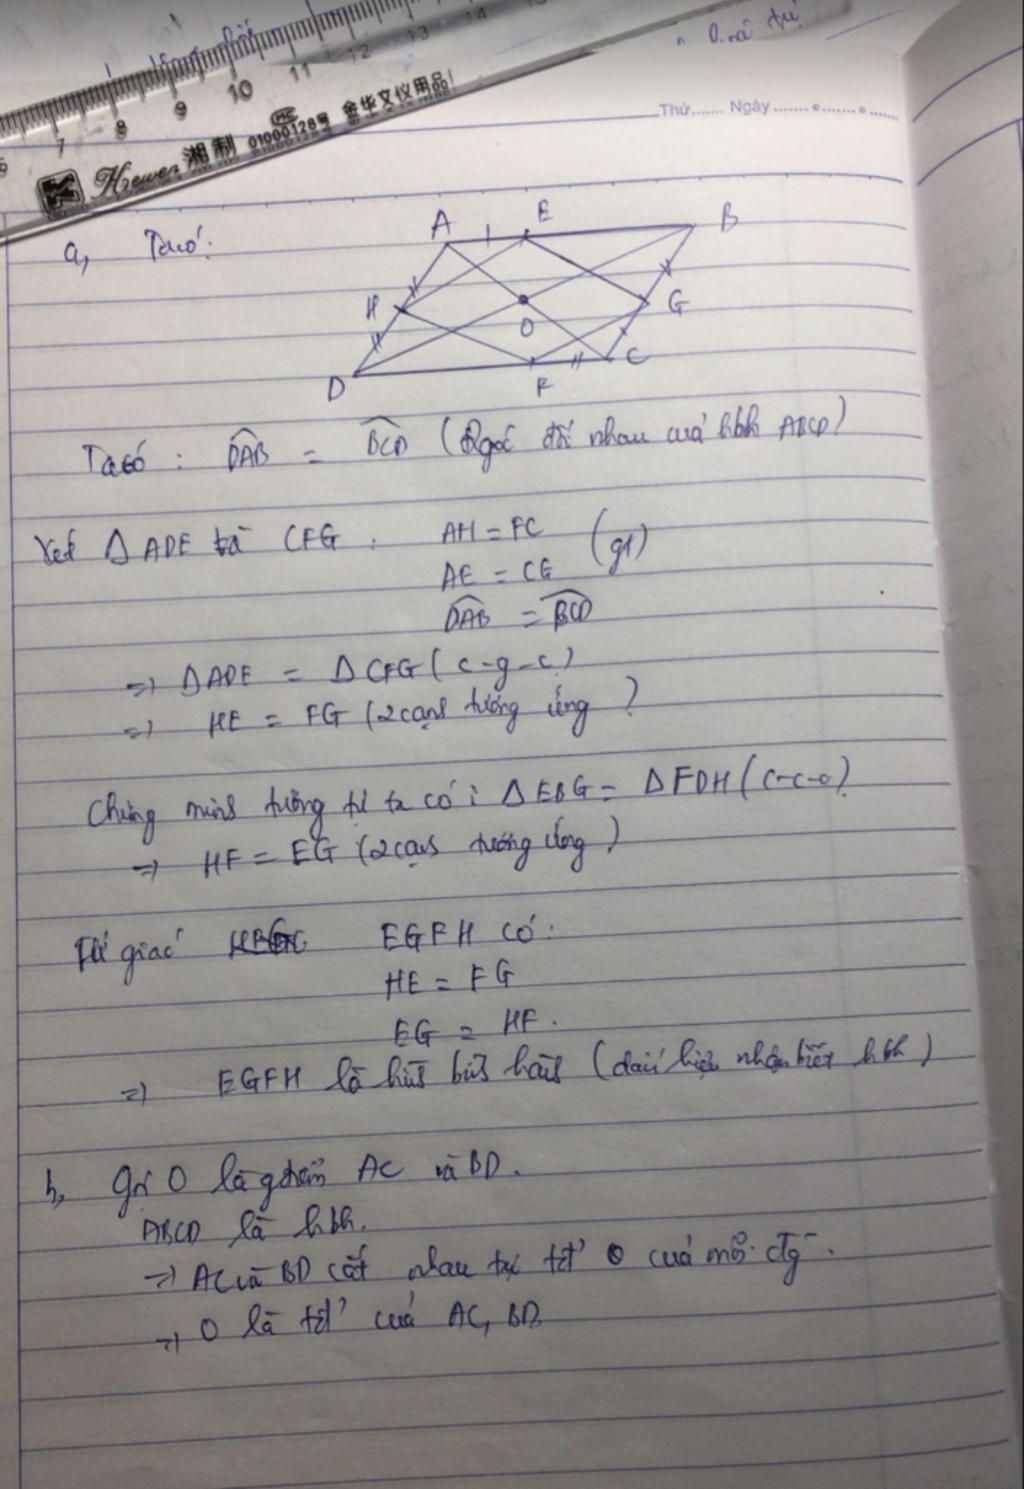 6 7 8 9 10 11 12 13 14 15
Hewen 湘制 01000128号 金华文仪用品!
Thứ....... Ngày
a, Ta có:
A E B
H G
O
D F C
Ta có : DAB = BCD ( 2 góc đối nhau của hbh ABCD )
Xét △ ADE và CFG : AH = FC
(gt)
AE = CG
DAB = BCD
=> △ADE = △CFG ( c-g-c )
=> HE = FG ( 2 cạnh tương ứng )
Chứng minh tương tự ta có : △EBG = △FDH ( c-c-c )
=> HF = EG ( 2 cạnh tương ứng )
Tứ giác EGFH có :
HE = FG
EG = HF.
=> EGFH là hình bình hành ( dấu hiệu nhận biết hbh )
b, Gọi O là gđiểm AC và BD.
ABCD là hbh.
=> AC và BD cắt nhau tại tđ O của mỗi đg.
=> O là tđ của AC, BD